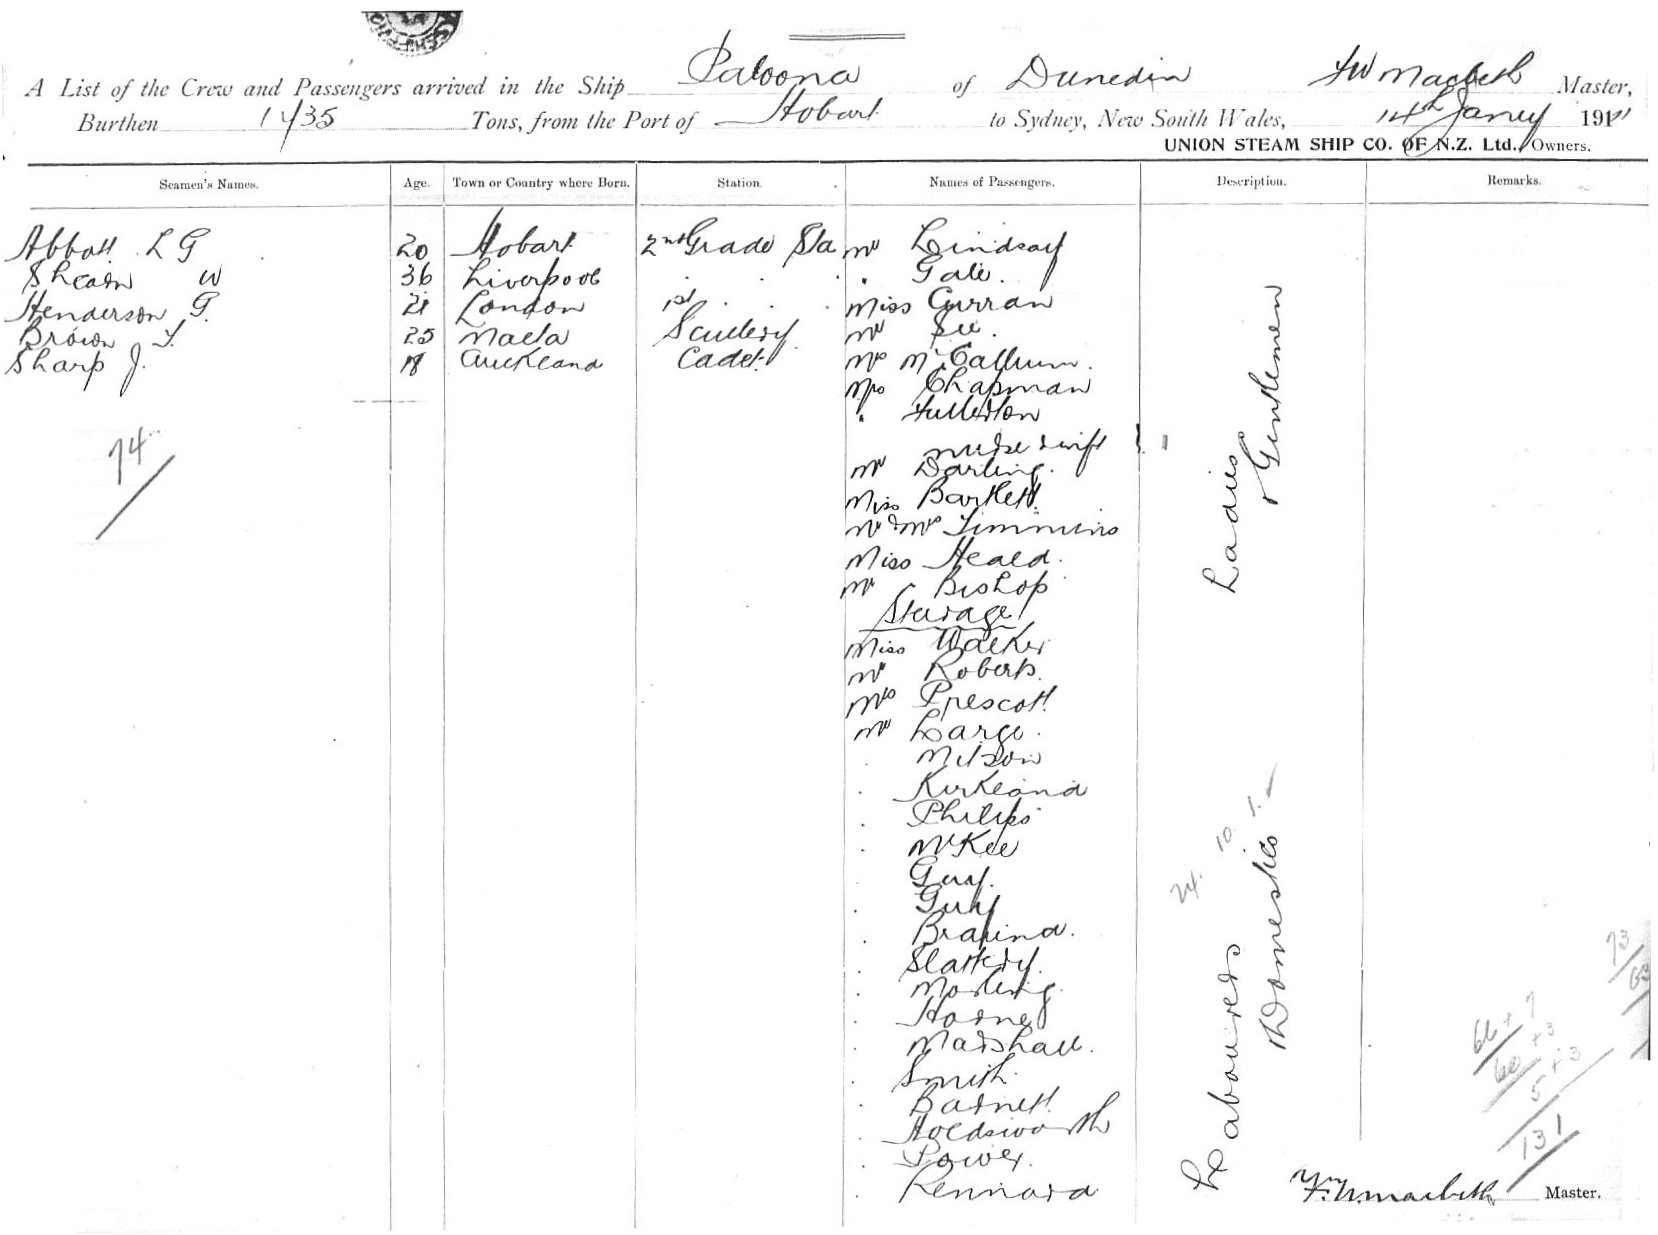 A List of the Crew and Passengers arrived in the Ship Paloona of Dunedin FW Macbeth Master,
Burthen Tons, from the Port of Hobart to Sydney, New South Wales, 14th Jany 1911
UNION STEAM SHIP CO. OF N.Z. Ltd., Owners.
Seamen's Names. Age. Town or Country where Born. Station. Names of Passengers. Description. Remarks.
Abbott L G 20 Hobart 2nd Grade Sta Mr Lindsay
Shearn W 36 Liverpool " " " Gale
Henderson G. 21 London 1st " " Miss Curran
Brown T. 25 Malta Scullery Mr
Sharp J. 18 Auckland Cadet Mrs McCallum
Mrs Chapman
" Fullerton
nurse & inft
Mr Darling
Miss Bartlett
Mr & Mrs Timmins
Miss Heald
Mr Bishop
Ladies & Gentlemen
74
Steerage
Miss Walker
Mr Roberts
Mrs Prescott
Mr Large
Milson
Kirkland
Philips
McKee
Guy
Guy
Slattery
Morling
Horne
Marshall
Smith
Barnett
Holdsworth
Power
Kennard
Labourers & Domestics
24. 10. 1.
73
63
66 + 7
60 + 3
5 + 3
131
F.W. Macbeth Master.